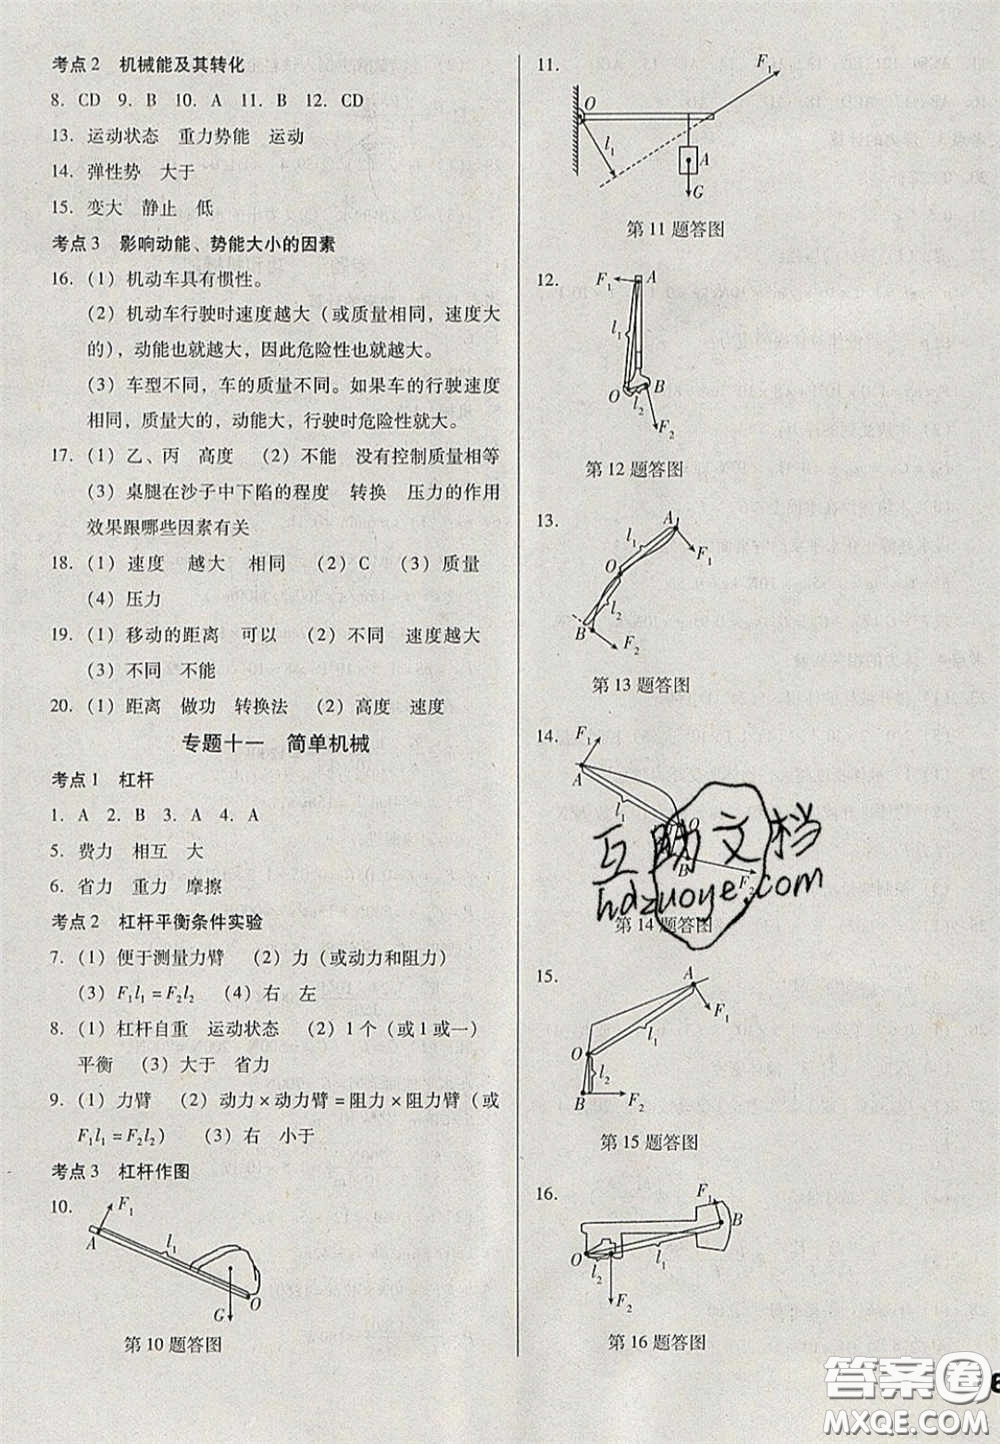 考点2　机械能及其转化
8. CD　9. B　10. A　11. B　12. CD
13. 运动状态　重力势能　运动
14. 弹性势　大于
15. 变大　静止　低
考点3　影响动能、势能大小的因素
16. (1) 机动车具有惯性。
(2) 机动车行驶时速度越大（或质量相同，速度大
的），动能也就越大，因此危险性也就越大。
(3) 车型不同，车的质量不同。如果车的行驶速度
相同，质量大的，动能大，行驶时危险性就大。
17. (1) 乙、丙　高度　(2) 不能　没有控制质量相等
(3) 桌腿在沙子中下陷的程度　转换　压力的作用
效果跟哪些因素有关
18. (1) 速度　越大　相同　(2) C　(3) 质量
(4) 压力
19. (1) 移动的距离　可以　(2) 不同　速度越大
(3) 不同　不能
20. (1) 距离　做功　转换法　(2) 高度　速度
专题十一　简单机械
考点1　杠杆
1. A　2. B　3. A　4. A
5. 费力　相互　大
6. 省力　重力　摩擦
考点2　杠杆平衡条件实验
7. (1) 便于测量力臂　(2) 力（或动力和阻力）
(3) F₁l₁＝F₂l₂　(4) 右　左
8. (1) 杠杆自重　运动状态　(2) 1个（或1或一）
平衡　(3) 大于　省力
9. (1) 力臂　(2) 动力×动力臂＝阻力×阻力臂（或
F₁l₁＝F₂l₂）　(3) 右　小于
考点3　杠杆作图
10.
F₁
A
l₁
G
O
第10题答图
11.
F₁
O
l₁
A
G
第11题答图
12.
F₁
A
l₁
O
B
l₂
F₂
第12题答图
13.
A
l₁
F₁
O
l₂
B
F₂
第13题答图
14.
F₁
A
l₁
O
B
F₂
第14题答图
15.
A
F₁
l₁
O
l₂
B
F₂
第15题答图
16.
F₁
B
O
l₁
l₂
F₂
第16题答图
互助文档
hdzuoye.com
答案圈
MXQE.COM
6